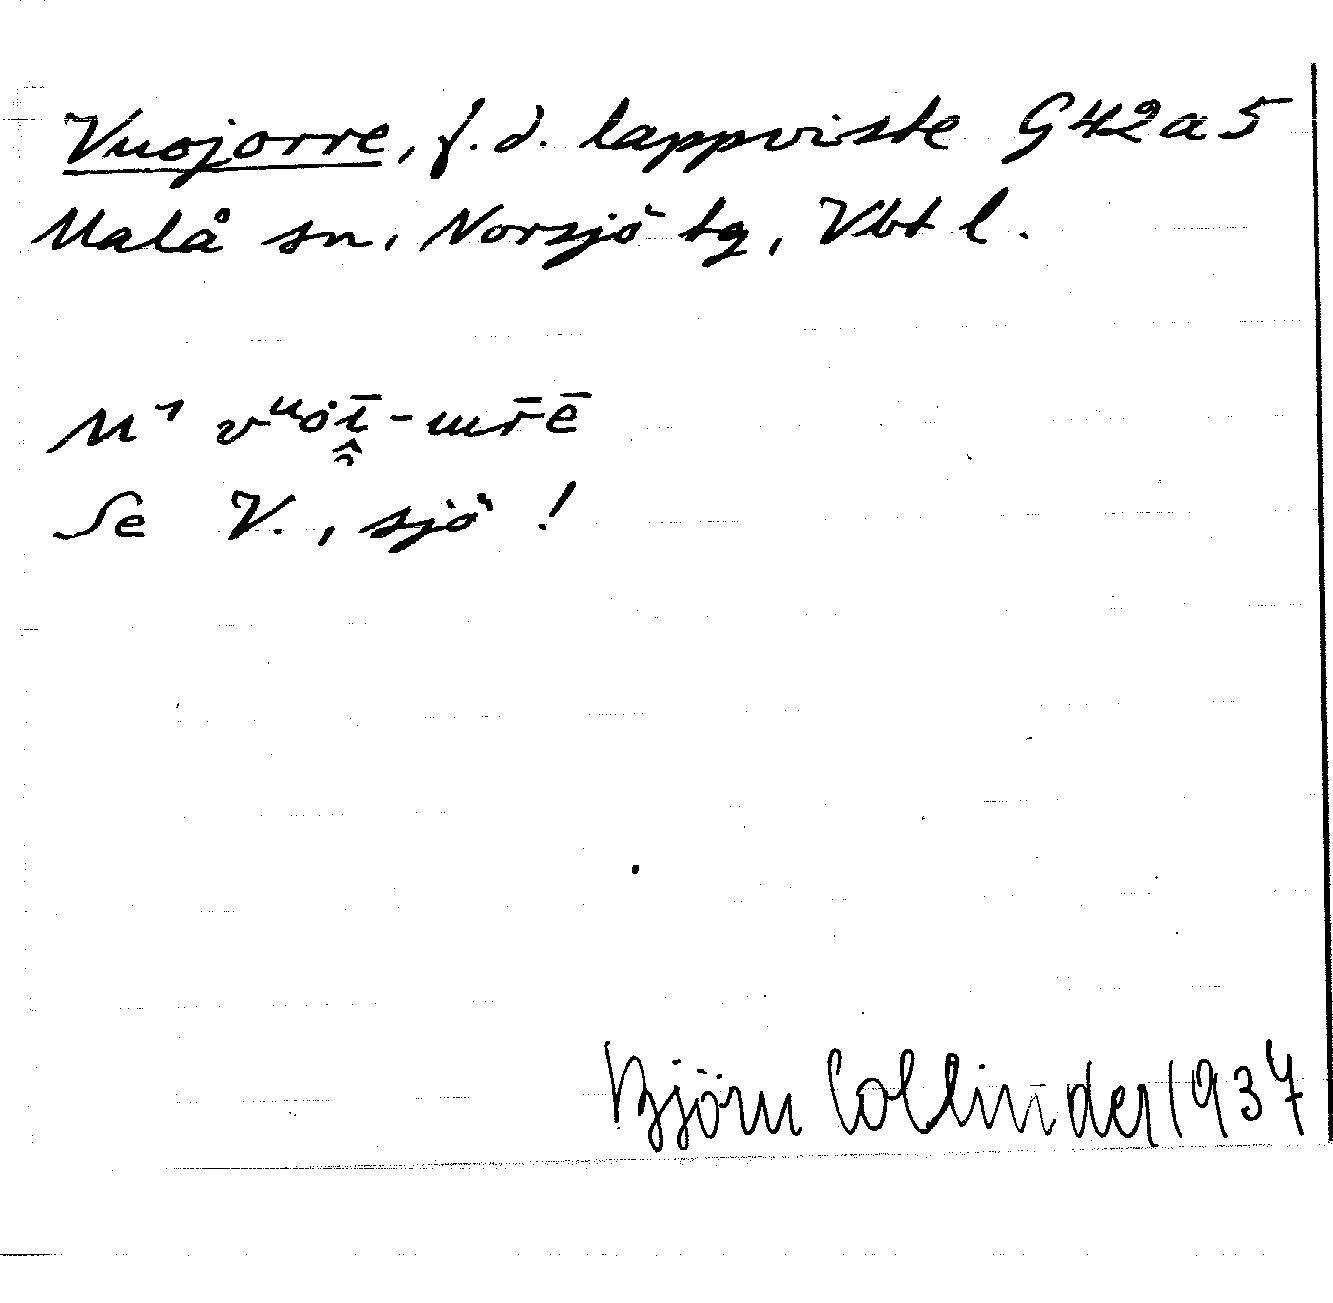 Vuojorre, f.d. lappviste G42a5
Malå sn, Norsjö tg, Vbt l.
M¹ vᵘȯī̯̑-ɯr̄ē
Se V., sjö!
Björn Collinder 1937